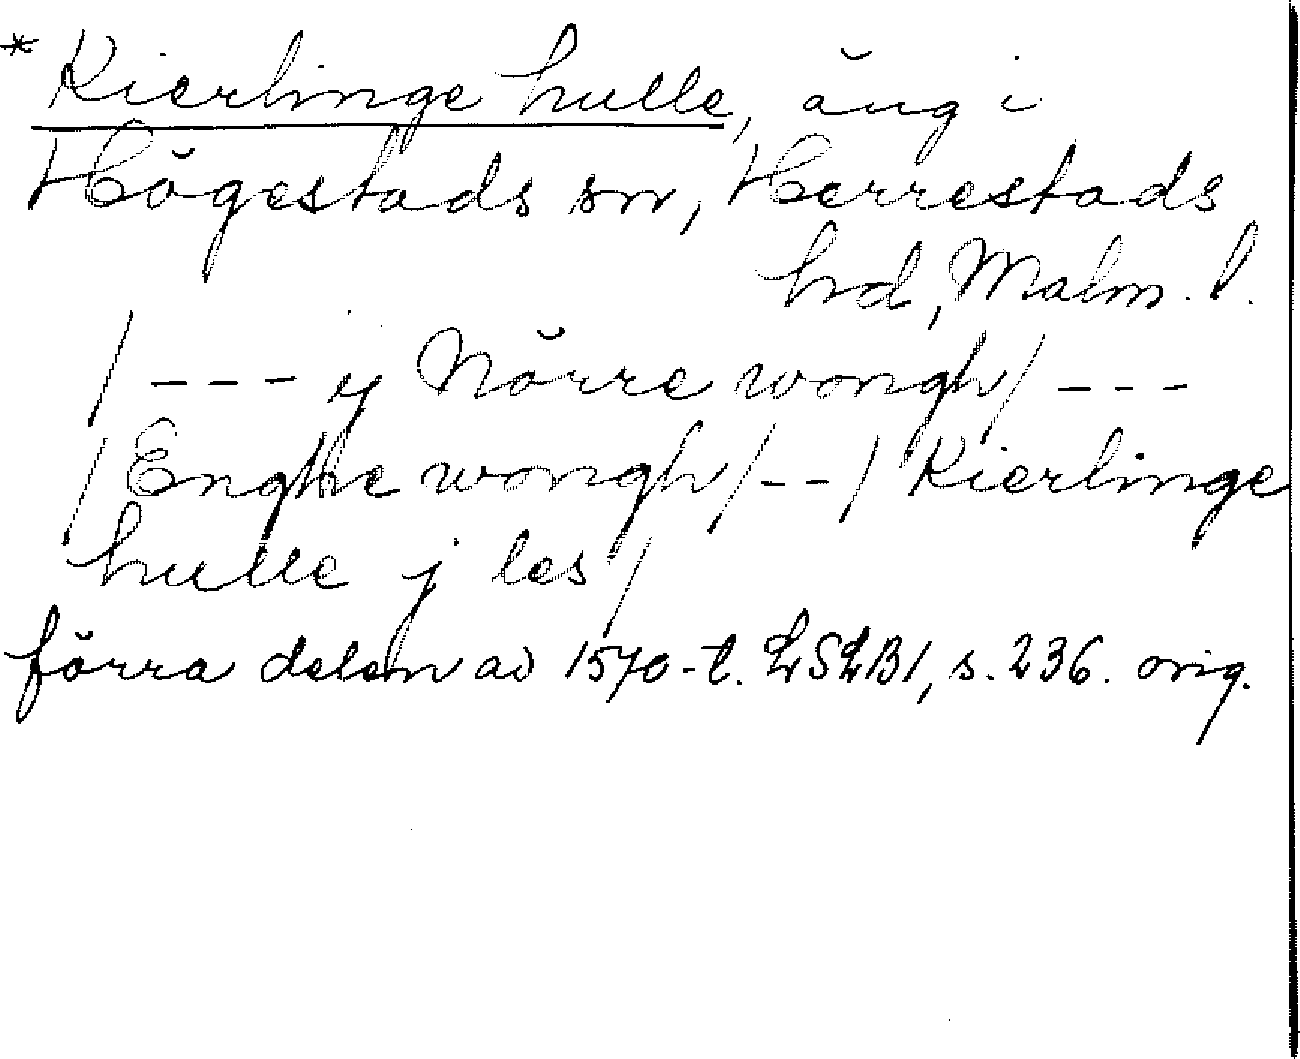 * Kierlinge hulle, äng i
Högestads sn, Herrestads
hd, Malm. l.
/ --- ij Nörre wongh/ ---
/ Enghe wongh/--/ Kierlinge
hulle j les /
förra delen av 1570-t. LSLB1, s. 236. orig.